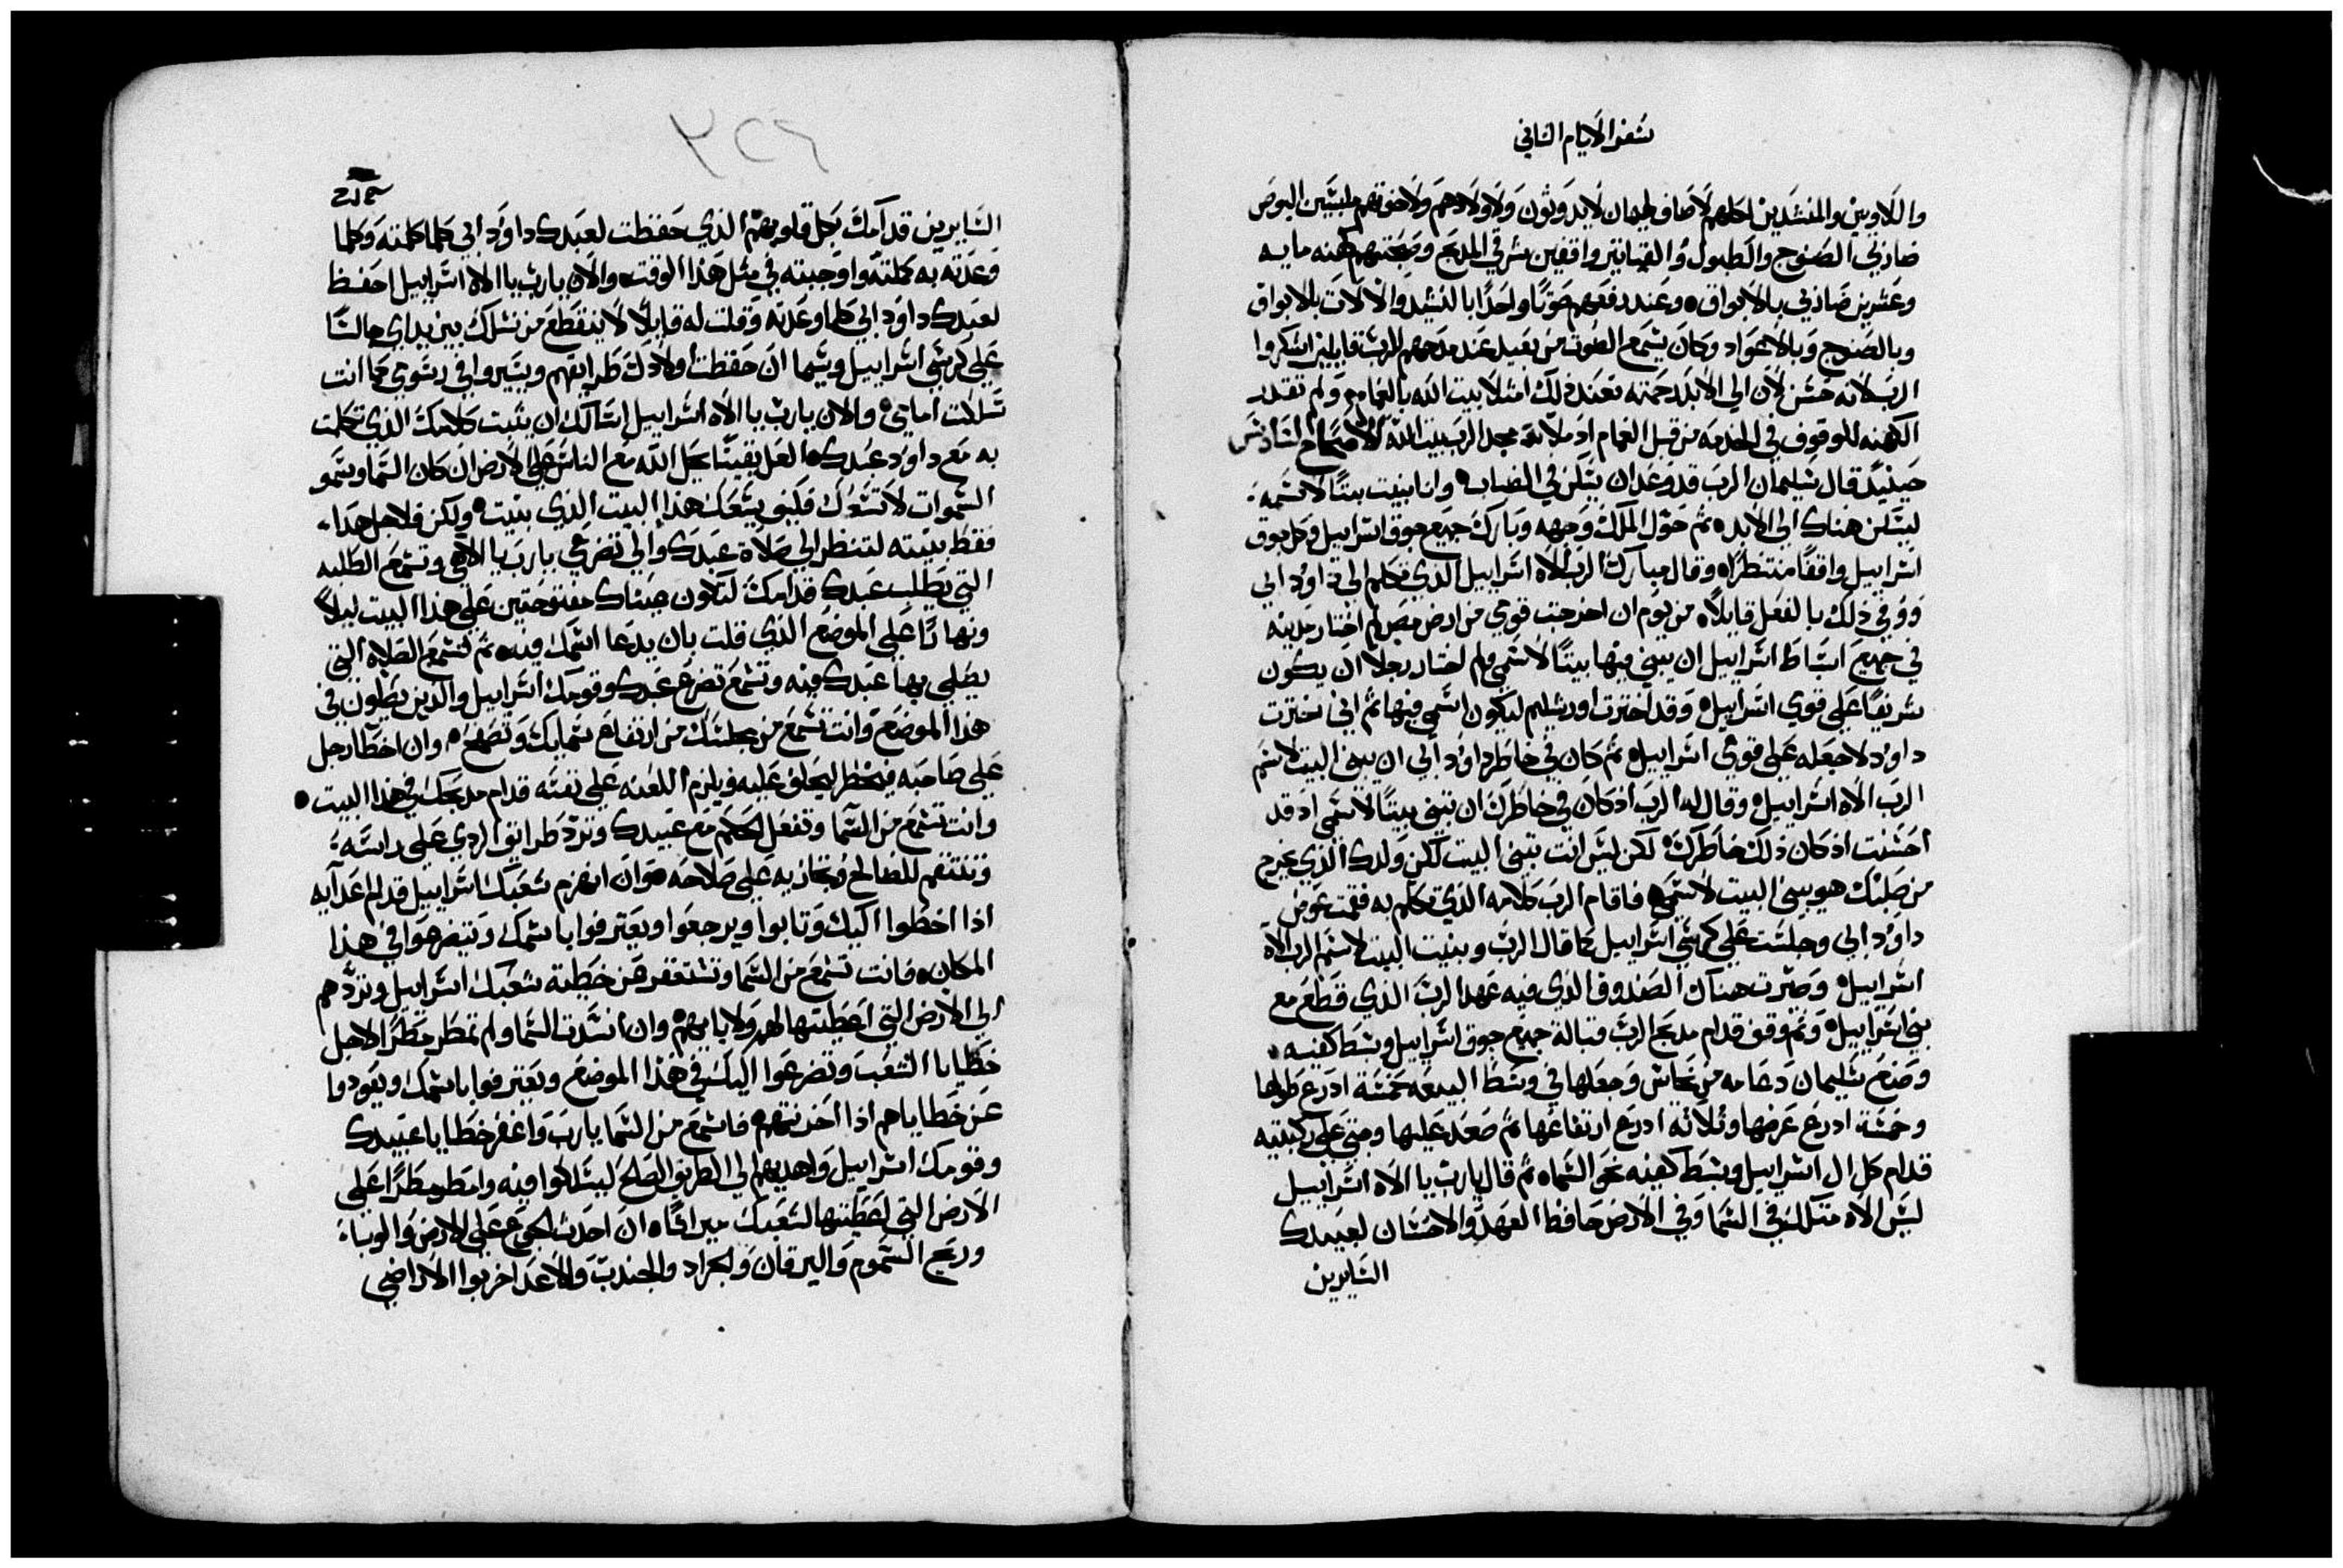 سفر الايام الثاني
واللاويين والمنشدين كلهم لاصاف لهيمان لايدوثون ولاولادهم ولاخوتهم ملبشين البوص
ضاربي الصنوج والطبول والقياثير واقفين شرقي المدبح وصحبتهم كهنه مايه
وعشرين ضاربي بالابواق وعند رفعهم صوتًا واحدًا بالنشيد والالات بالابواق
وبالصنوج وبالاعواد وكان يسمع الصوت من بعيد عند مدحهم للرب قايلين اشكروا
الرب لانه حسن لان الي الابد رحمته فعند ذلك امتلا بيت الله بالغمام ولم تقدر
الكهنه للوقوف في الخدمه من قبل الغمام اذ ملا مجد الرب بيت الله الاصحاح السادس
حينيدٍ قال سليمان الرب قد وعد ان يسكن في الضباب وانا بنيت بيتًا لاسمه
ليسكن هناك الي الابد ثم حول الملك وجهه وبارك جميع جوق اسراييل وكل جوق
اسراييل واقفًا منتظرًا وقال مبارك الرب الاه اسراييل الذي تكلم الي داوُد ابي
ووفي ذلك بالفعل قايلًا من يوم ان اخرجت قومي من ارض مصر لم اختار مدينه
في جميع اسباط اسراييل ان يبني فيها بيتًا لاسمي ولم اختار رجلًا ان يكون
شريفًا علي قومي اسراييل وقد اخترت اورشليم ليكون اسمي فيها ثم اني اخترت
داوُد لاجعله علي قومي اسراييل ثم كان في خاطر داوُد ابي ان يبني البيت لاسم
الرب الاه اسراييل وقال له الرب اذ كان في خاطرك ان تبني بيتًا لاسمي اذ قد
احسنت اذ كان ذلك خاطرك لكن ليس انت تبني البيت لكن ولدك الذي يخرج
من صلبك هو يبني البيت لاسمي فاقام الرب كلامه الذي تكلم به فقمت عوض
داوُد ابي وجلست علي كرسي اسراييل كما قال الرب وبنيت البيت لاسم الرب الاه
اسراييل وصيرت هناك الصندوق الذي فيه عهد الرب الذي قطع مع
بني اسراييل وثم وقف قدام مدبح الرب قبالة جميع جوق اسراييل وبسط كفيه
وصنع سليمان دعامه من نحاس وجعلها في وسط البيعه خمسة ادرع طولها
وخمسة ادرع عرضها وثلاثه ادرع ارتفاعها ثم صعد عليها وجثي علي ركبتيه
قدام كل ال اسراييل وبسط كفيه نحو السماء ثم قال يارب يا الاه اسراييل
ليس الاه مثلك في السما وفي الارض حافظ العهد والاحسان لعبيدك
السايرين
٣٢٦
السايرين قدامك بكل قلوبهم الذي حفظت لعبدك داوُد ابي كلما كلمته وكلما
وعدته به كملته واوجبته في مثل هذا الوقت والان يارب يا الاه اسراييل احفظ
لعبدك داوُد ابي كلما وعدته وقلت له قايلًا لا ينقطع من نسلك بين يداي جالسًا
علي كرسي اسراييل وسيما ان حفظت اولادك طرايقهم ويسيروا في رسومي كما انت
سلكت امامي والان يارب يا الاه اسراييل اسالك ان يثبت كلامك الذي تكلمت
به مع داوُد عبدك لعل يقينًا يحل الله مع الناس علي الارض ان كان السما وسمو
السموات لا تسعك فكيف يسعك هذا البيت الذي بنيت ولكن فلاجل هذا
فقط بنيته لتنظر الي صلاة عبدك والي تضرعي يارب يا الاهي وتسمع الطلبه
التي يطلب عبدك قدامك لتكون عيناك مفتوحتين علي هذا البيت ليلًا
ونهارًا علي الموضع الذي قلت بان يدعا اسمك فيه ثم تسمع الصلاه التي
يصلي بها عبدك فيه وتسمع تضرع عبدك وقومك اسراييل والذين يصلون في
هذا الموضع وانت تسمع من مجلسك من ارتفاع سمايك وتصفح وان اخطا رجل
علي صاحبه فيحظر ليحلف عليه ويلزم اللعنه علي نفسه قدام مدبحك في هذا البيت
وانت تسمع من السما وتفعل الحكم مع عبيدك وترد طرايق الردي علي راسه
وتنتقم للصالح وتجازيه علي صلاحه وان انهزم شعبك اسراييل قدام اعدآيه
اذا اخطوا اليك وتابوا ويرجعوا ويعترفوا باسمك ويتضرعوا في هذا
المكان فانت تسمع من السما وتستغفر عن خطية شعبك اسراييل وتردهم
الي الارض التي اعطيتها لهم ولابايهم وان انسدت السما ولم تمطر مطرًا لاجل
خطايا الشعب وتضرعوا اليك في هذا الموضع ويعترفوا باسمك ويعودوا
عن خطاياهم اذا احزنتهم فاسمع من السما يارب واغفر خطايا عبيدك
وقومك اسراييل واهديهم الي الطريق الصالح ليسلكوا فيه وامطر مطرًا علي
الارض التي اعطيتها لشعبك ميراثًا ان احدث الجوع علي الارض والوباء
وريح السموم واليرقان والجراد والجندب والاعدا خربوا الاراضي